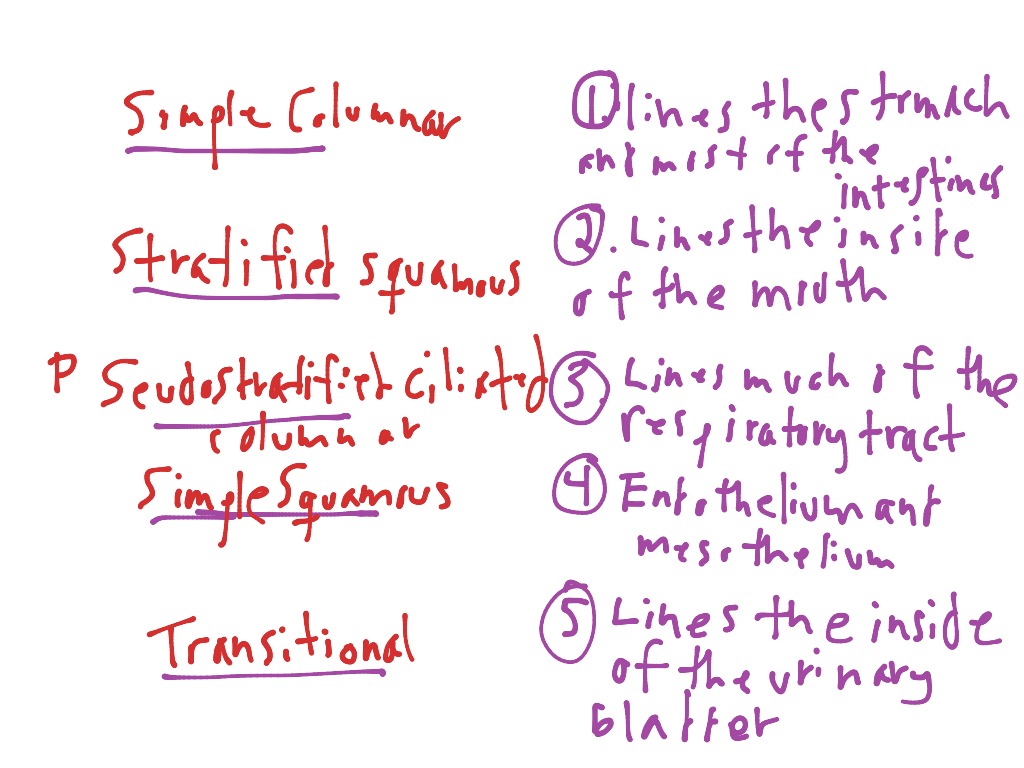 Simple Columnar
Stratified squamous
P Seudostratified ciliated
columnar
Simple Squamous
Transitional
1. lines the stomach
and most of the
intestines
2. Lines the inside
of the mouth
3 Lines much of the
respiratory tract
4 Endothelium and
mesothelium
5 Lines the inside
of the urinary
bladder